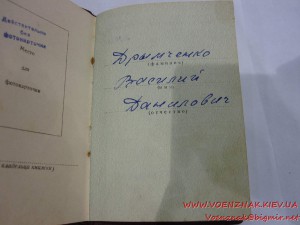 Действительно
без
фотокарточки
Место
для
фотокарточки
Дрымченко
(фамилия)
Василий
(имя)
Данилович
(отчество)
WWW.VOENZNAK.KIEV.UA
Voenznak@bigmir.net